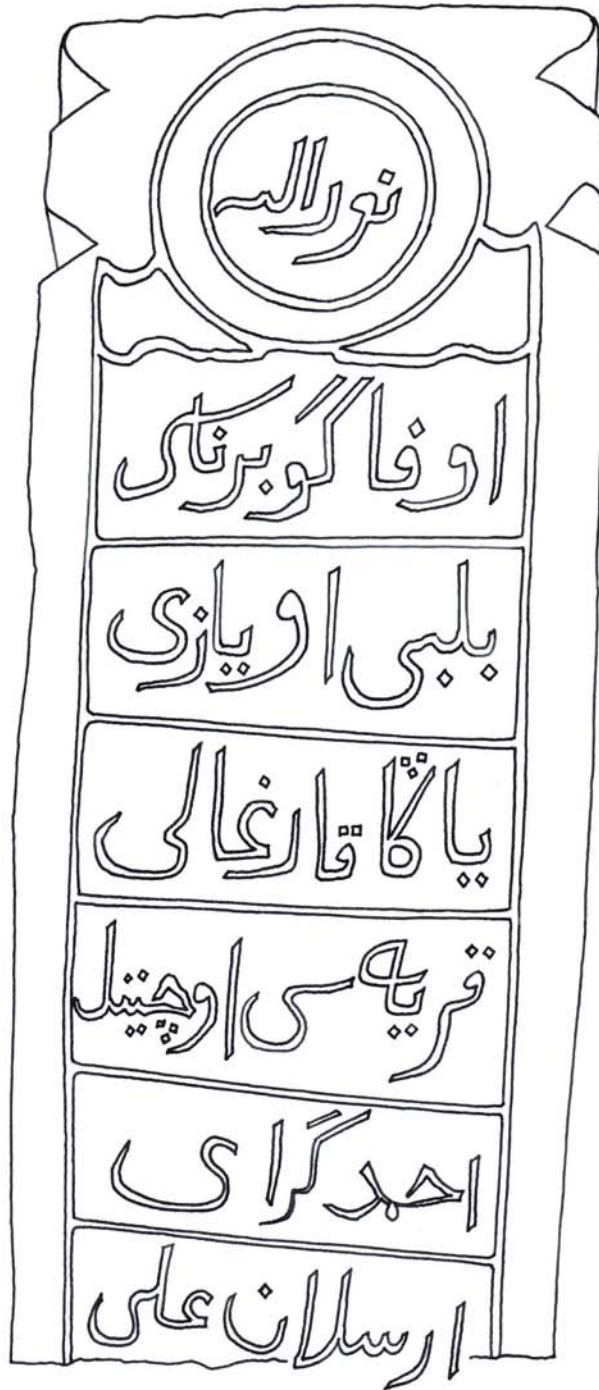 نوراله
اوفا گوبرناسی
بلبی اویازی
یاڭا قارغالی
قریه سی اوچیتیل
احمدگرای
ارسلان علی